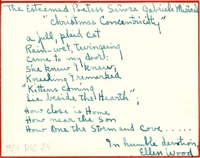 The Esteemed Poetess Señora Gabriela Mistral
"Christmas Concentricity"
a full, plaid cat
Rain-wet, twinging
Came to my door:
She knew I knew,
Kneeling I remarked
"Kittens Coming
Lie beside the Hearth";
How close is Home
How near the Son
How One the Storm and Cave.....
In humble devotion,
Ellen Wood